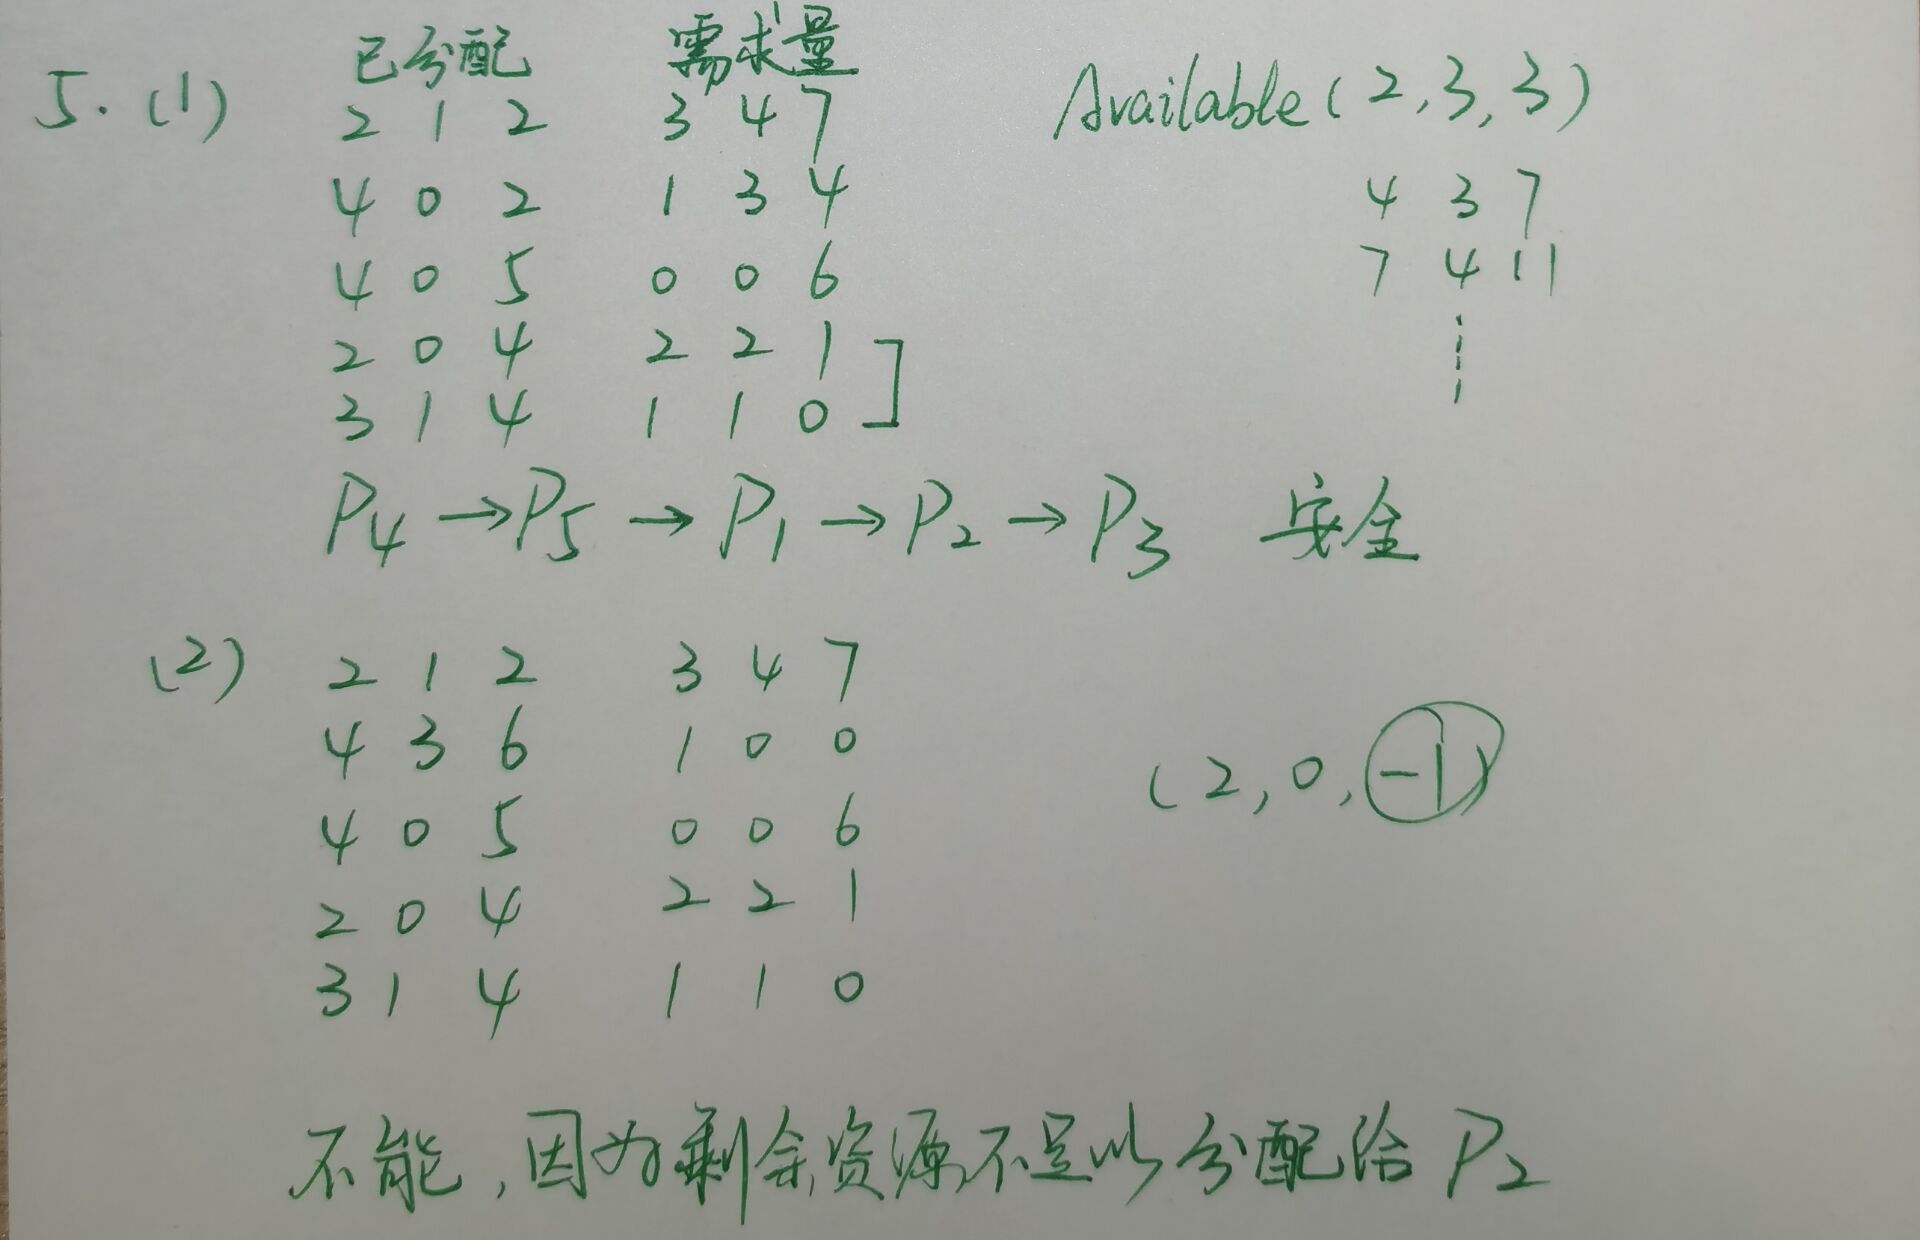 已分配 需求量
5.(1) 2 1 2 3 4 7 Available(2,3,3)
4 0 2 1 3 4 4 3 7
4 0 5 0 0 6 7 4 11
2 0 4 2 2 1
3 1 4 1 1 0
P4→P5→P1→P2→P3 安全
(2) 2 1 2 3 4 7
4 3 6 1 0 0 (2,0,-1)
4 0 5 0 0 6
2 0 4 2 2 1
3 1 4 1 1 0
不能,因为剩余资源不足以分配给P2